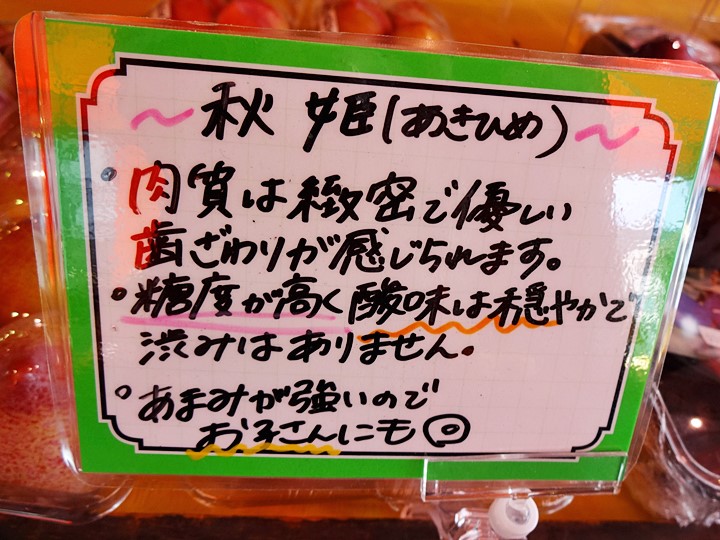 ～秋姫(あきひめ)～
・肉質は緻密で優しい
歯ざわりが感じられます。
・糖度が高く酸味は穏やかで
渋みはありません.
・あまみが強いので
お子さんにも◎